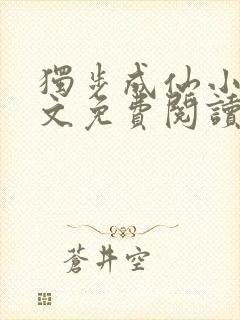 獨步成仙小
文免費閱讀
蒼井空